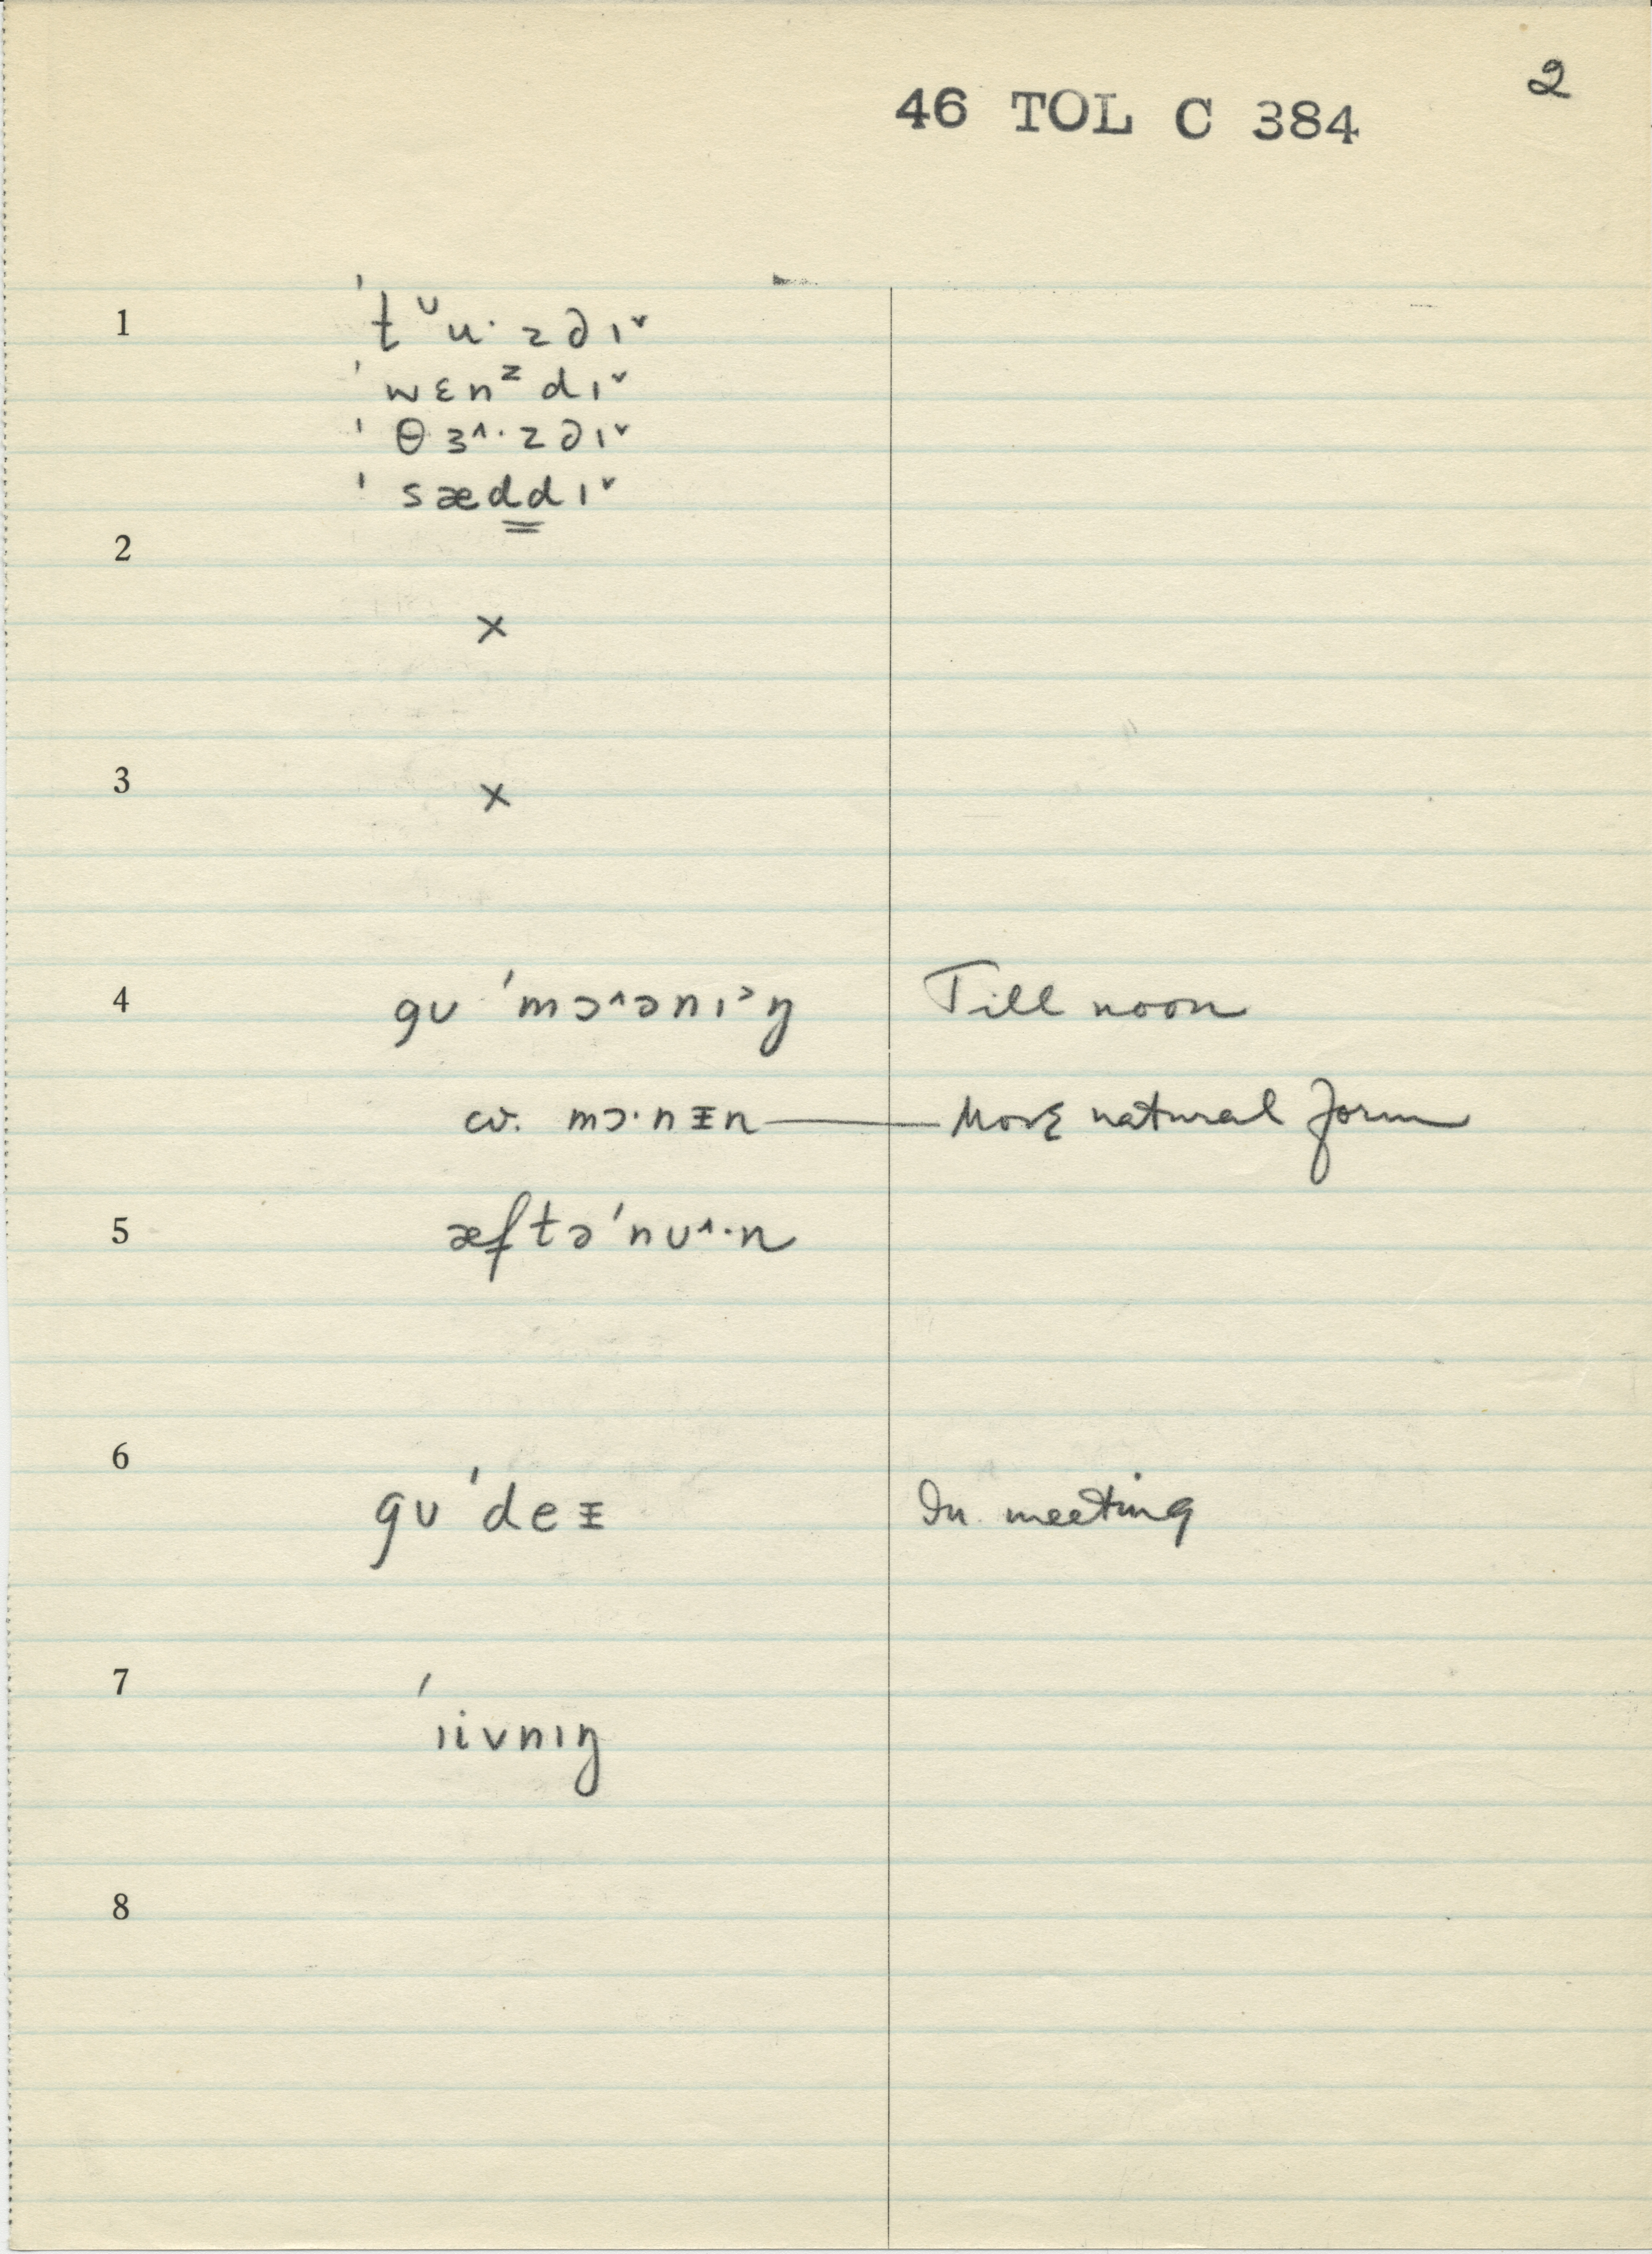 2
46 TOL C 384
1 ˈtᶷu·zdɪ˅
ˈwɛnᶻdɪ˅
ˈθɜ^·zdɪ˅
ˈsæddɪ˅
2
×
3
×
4 gʊ ˈmɔ^ənɪ˃ŋ Till noon
cv. mɔ·nɪn — More natural form
5 æftəˈnʊ^·n
6 gʊ ˈdeɪ In meeting
7 ˈɪivnɪŋ
8